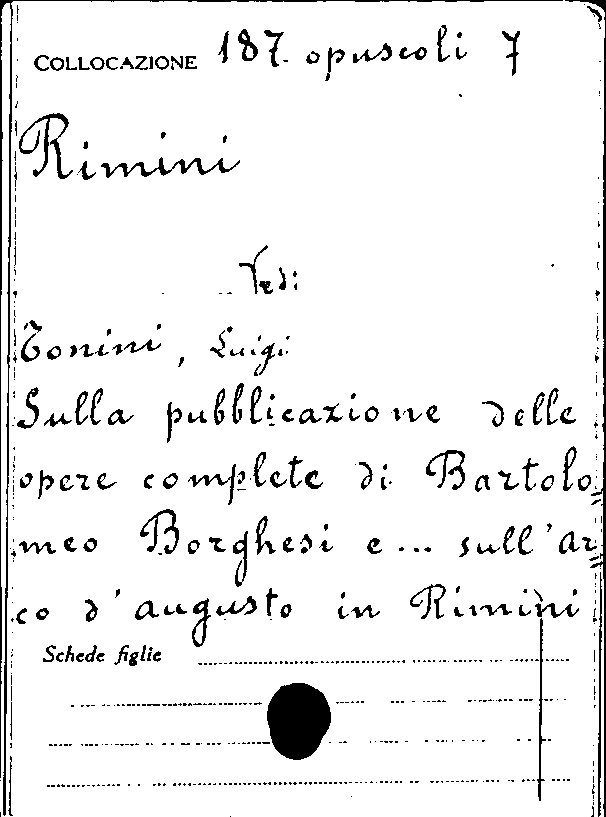 COLLOCAZIONE 187. opuscoli 7
Rimini
Vedi
Tonini, Luigi
Sulla pubblicazione delle
opere complete di Bartolo
meo Borghesi e... sull'ar
co d'augusto in Rimini
Schede figlie